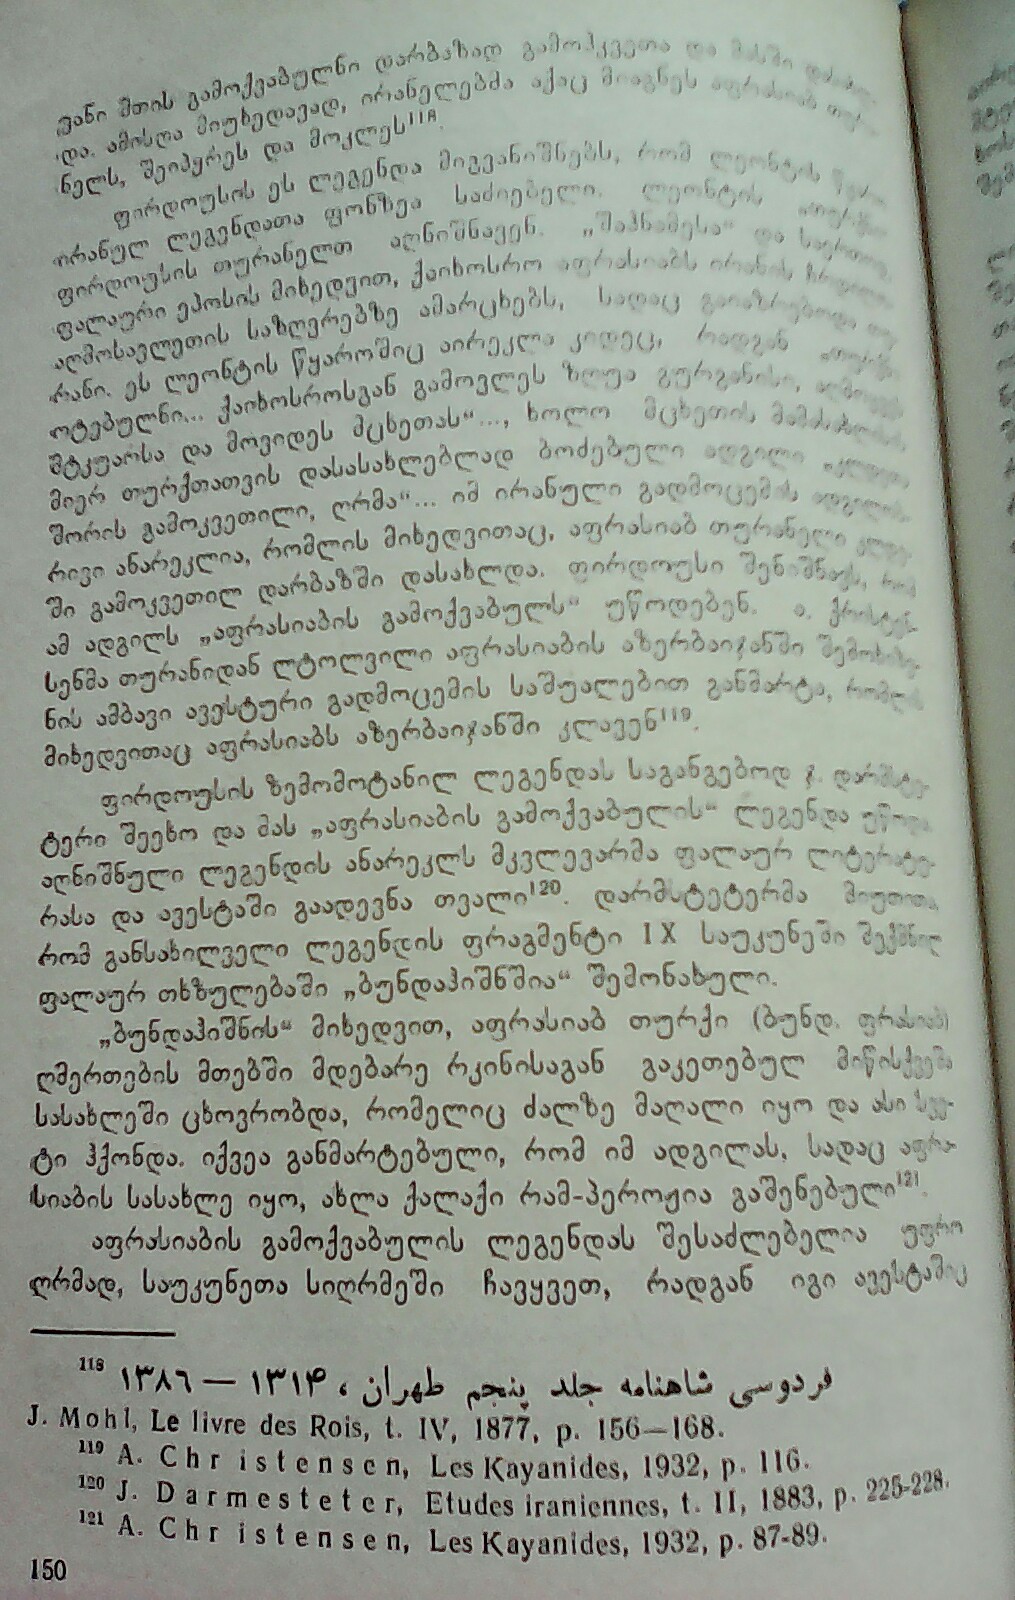 ვანი მთის გამოქვაბულნი დარბაზად გამოჰკვეთა და მასში
და. ამისდა მიუხედავად, ირანელებმა აქაც მიაგნეს აფრასიაბ
ნელს, შეიპყრეს და მოკლეს¹¹⁸.
ფირდოუსის ეს ლეგენდა მიგვანიშნებს, რომ ლეონტის
ირანულ ლეგენდათა ფონზეა საძიებელი. ლეონტის
ფირდოუსის თურანელთ აღნიშნავენ. „შაჰნამესა“ და საერთოდ,
ფალაური ეპოსის მიხედვით, ქაიხოსრო აფრასიაბს ირანის
აღმოსავლეთის საზღვრებზე ამარცხებს, სადაც
რანი. ეს ლეონტის წყაროშიც აირეკლა კიდეც, რადგან
ოტებულნი... ქაიხოსროსგან გამოვლეს ზღუა გურგანისი,
მტკუარსა და მოვიდეს მცხეთას“..., ხოლო მცხეთის
მიერ თურქთათვის დასასახლებლად ბოძებული ადგილი
შორის გამოკვეთილი, ღრმა“... იმ ირანული გადმოცემის
რივი ანარეკლია, რომლის მიხედვითაც, აფრასიაბ თურანელი
ში გამოკვეთილ დარბაზში დასახლდა. ფირდოუსი შენიშნავს, რომ
ამ ადგილს „აფრასიაბის გამოქვაბულს“ უწოდებენ. ა. ქრისტენ-
სენმა თურანიდან ლტოლვილი აფრასიაბის აზერბაიჯანში
ნის ამბავი ავესტური გადმოცემის საშუალებით განმარტა, რომლის
მიხედვითაც აფრასიაბს აზერბაიჯანში კლავენ¹¹⁹.
ფირდოუსის ზემომოტანილ ლეგენდას საგანგებოდ ჯ. დარმსტე-
ტერი შეეხო და მას „აფრასიაბის გამოქვაბულის“ ლეგენდა
აღნიშნული ლეგენდის ანარეკლს მკვლევარმა ფალაურ ლიტერატუ-
რასა და ავესტაში გაადევნა თვალი¹²⁰. დარმსტეტერმა მიუთითა,
რომ განსახილველი ლეგენდის ფრაგმენტი IX საუკუნეში შექმნილ
ფალაურ თხზულებაში „ბუნდაჰიშნშია“ შემონახული.
„ბუნდაჰიშნის“ მიხედვით, აფრასიაბ თურქი (ბუნდ. ფრასიაბ)
ღმერთების მთებში მდებარე რკინისაგან გაკეთებულ მიწისქვეშა
სასახლეში ცხოვრობდა, რომელიც ძალზე მაღალი იყო და ასი სვე-
ტი ჰქონდა. იქვეა განმარტებული, რომ იმ ადგილას, სადაც აფრა-
სიაბის სასახლე იყო, ახლა ქალაქი რამ-პეროჟია გაშენებული¹²¹.
აფრასიაბის გამოქვაბულის ლეგენდას შესაძლებელია უფრო
ღრმად, საუკუნეთა სიღრმეში ჩავყვეთ, რადგან იგი ავესტაშიც
¹¹⁸ فردوسی شاهنامه جلد پنجم طهران ، ۱۳۱۴ — ۱۳۸٦
J. Mohl, Le livre des Rois, t. IV, 1877, p. 156—168.
¹¹⁹ A. Christensen, Les Kayanides, 1932, p. 116.
¹²⁰ J. Darmesteter, Etudes iraniennes, t. II, 1883, p. 225-228.
¹²¹ A. Christensen, Les Kayanides, 1932, p. 87-89.
150